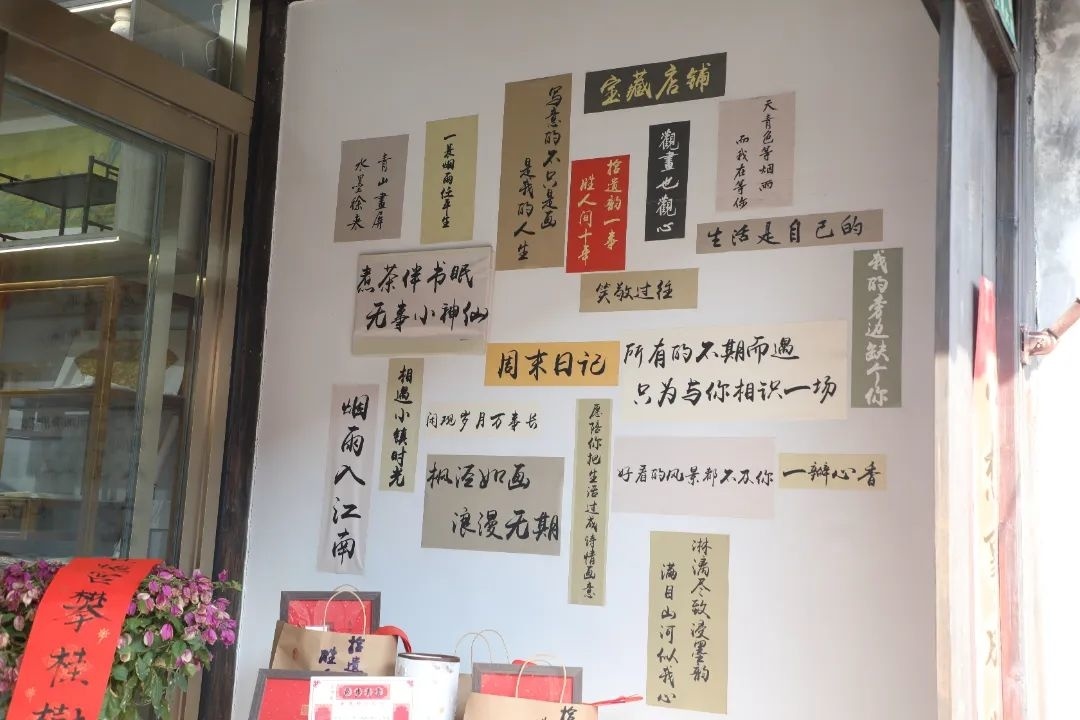 宝藏店铺
写意的不只是画
是我的人生
天青色等烟雨
而我在等你
觀畫也觀心
一蓑烟雨任平生
青山畫屏
水墨徐来
拾遗韵一事
胜人间十年
生活是自己的
煮茶伴书眠
无事小神仙
笑敬过往
我的旁边缺个你
周末日记
所有的不期而遇
只为与你相识一场
相遇小镇时光
烟雨入江南
闲观岁月万事长
愿陪你把生活过成诗情画意
好看的风景都不及你
一瓣心香
枫泾如画
浪漫无期
淋漓尽致浸墨韵
满目山河似我心
攀桂
拾遗
胜
拾